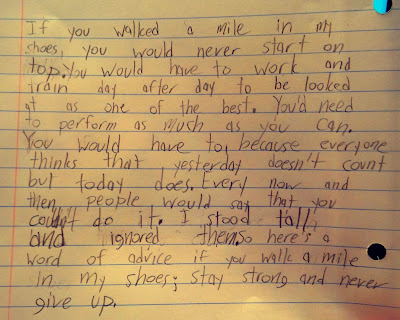 If you walked a mile in my
shoes, you would never start on
top. You would have to work and
train day after day to be looked
at as one of the best. You'd need
to perform as mush as you can.
You would have to, because everyone
thinks that yesterday doesn't count
but today does. Every now and
then people would say that you
couldn't do it. I stood tall,
and ignored them. So here's a
word of advice if you walk a mile
in my shoes; stay strong and never
give up.